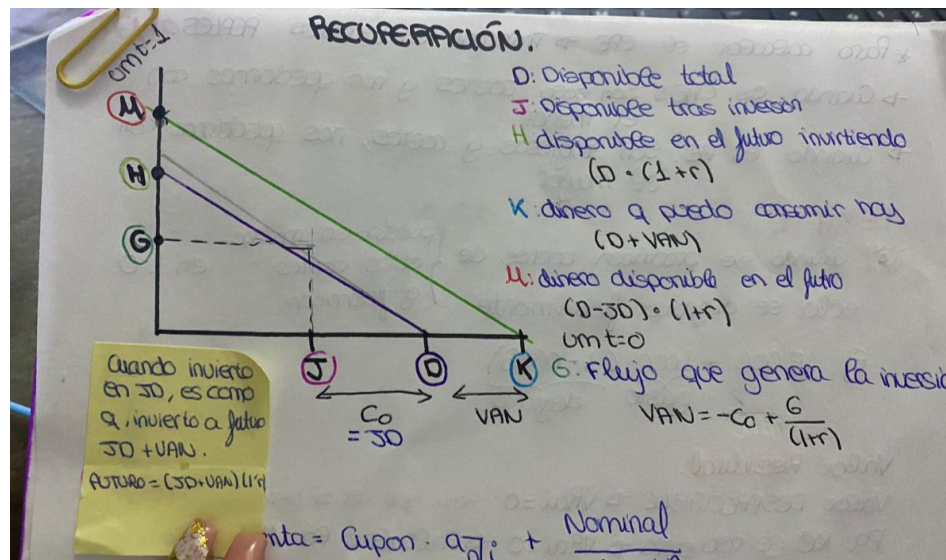 RECUPERACIÓN.
um t=1
M
H
G
J
D
K
C₀
= JD
VAN
D: Disponible total
J: Disponible tras inversión
H disponible en el futuro invirtiendo
(D · (1+r)
K: dinero q puedo consumir hoy
(D + VAN)
M: dinero disponible en el futro
(D-JD) · (1+r)
um t=0
G: Flujo que genera la inversió
VAN = -C₀ + G/(1+r)
Cuando invierto
en JD, es como
q invierto a futuro
JD + VAN.
FUTURO = (JD+VAN)(1+r)
nta = Cupon · a n̅ i + Nominal